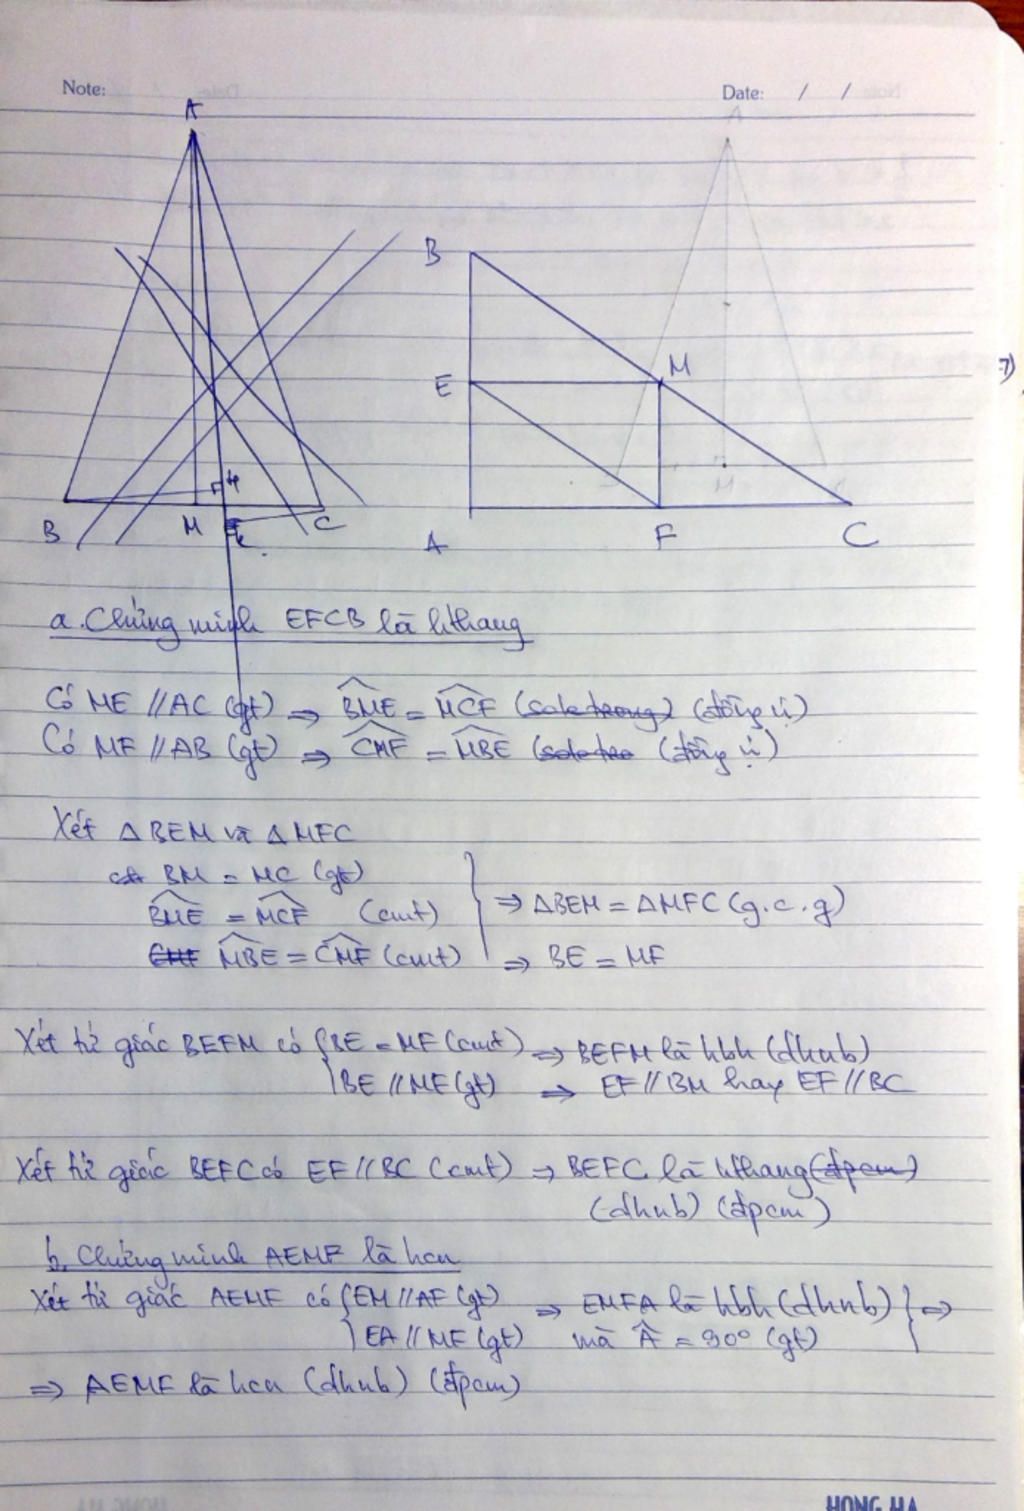 Note:
Date: / /
A
B
M
C
H
K
B
E
M
A
F
C
a. Chứng minh EFCB là hthang
Có ME // AC (gt) => BME = MCF (so le trong) (đồng vị)
Có MF // AB (gt) => CMF = MBE (so le tro (đồng vị)
Xét Δ BEM và Δ MFC
BM = MC (gt)
BME = MCF (cmt) => ΔBEM = ΔMFC (g.c.g)
CMF MBE = CMF (cmt) => BE = MF
Xét tứ giác BEFM có { BE = MF (cmt) => BEFM là hbh (dhnb)
BE // MF (gt) => EF // BM hay EF // BC
Xét tứ giác BEFC có EF // BC (cmt) => BEFC là hthang (đpcm)
(dhnb) (đpcm)
b, Chứng minh AEMF là hcn
Xét tứ giác AEMF có { EM // AF (gt) => EMFA là hbh (dhnb) } =>
EA // MF (gt) mà Â = 90° (gt)
=> AEMF là hcn (dhnb) (đpcm)
HONG HA